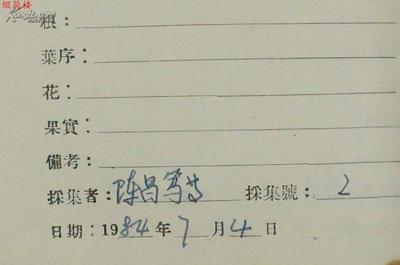 缀简楼
根：
葉序：
花：
果實：
備考：
採集者：陈昌笃等 採集號：2
日期：1984年7月4日